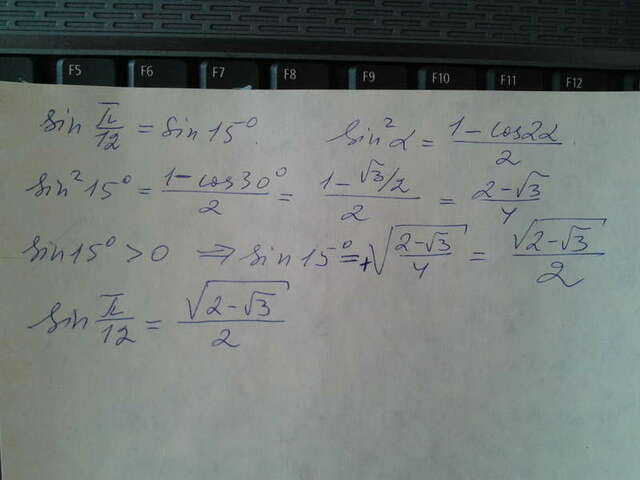 F5 F6 F7 F8 F9 F10 F11 F12
sin π/12 = sin 15°. sin²α = (1 - cos2α)/2.
sin² 15° = (1 - cos30°)/2 = (1 - √3/2)/2 = (2 - √3)/4
sin 15° > 0 ⇒ sin 15° = +√((2 - √3)/4) = √(2 - √3)/2
sin π/12 = √(2 - √3)/2